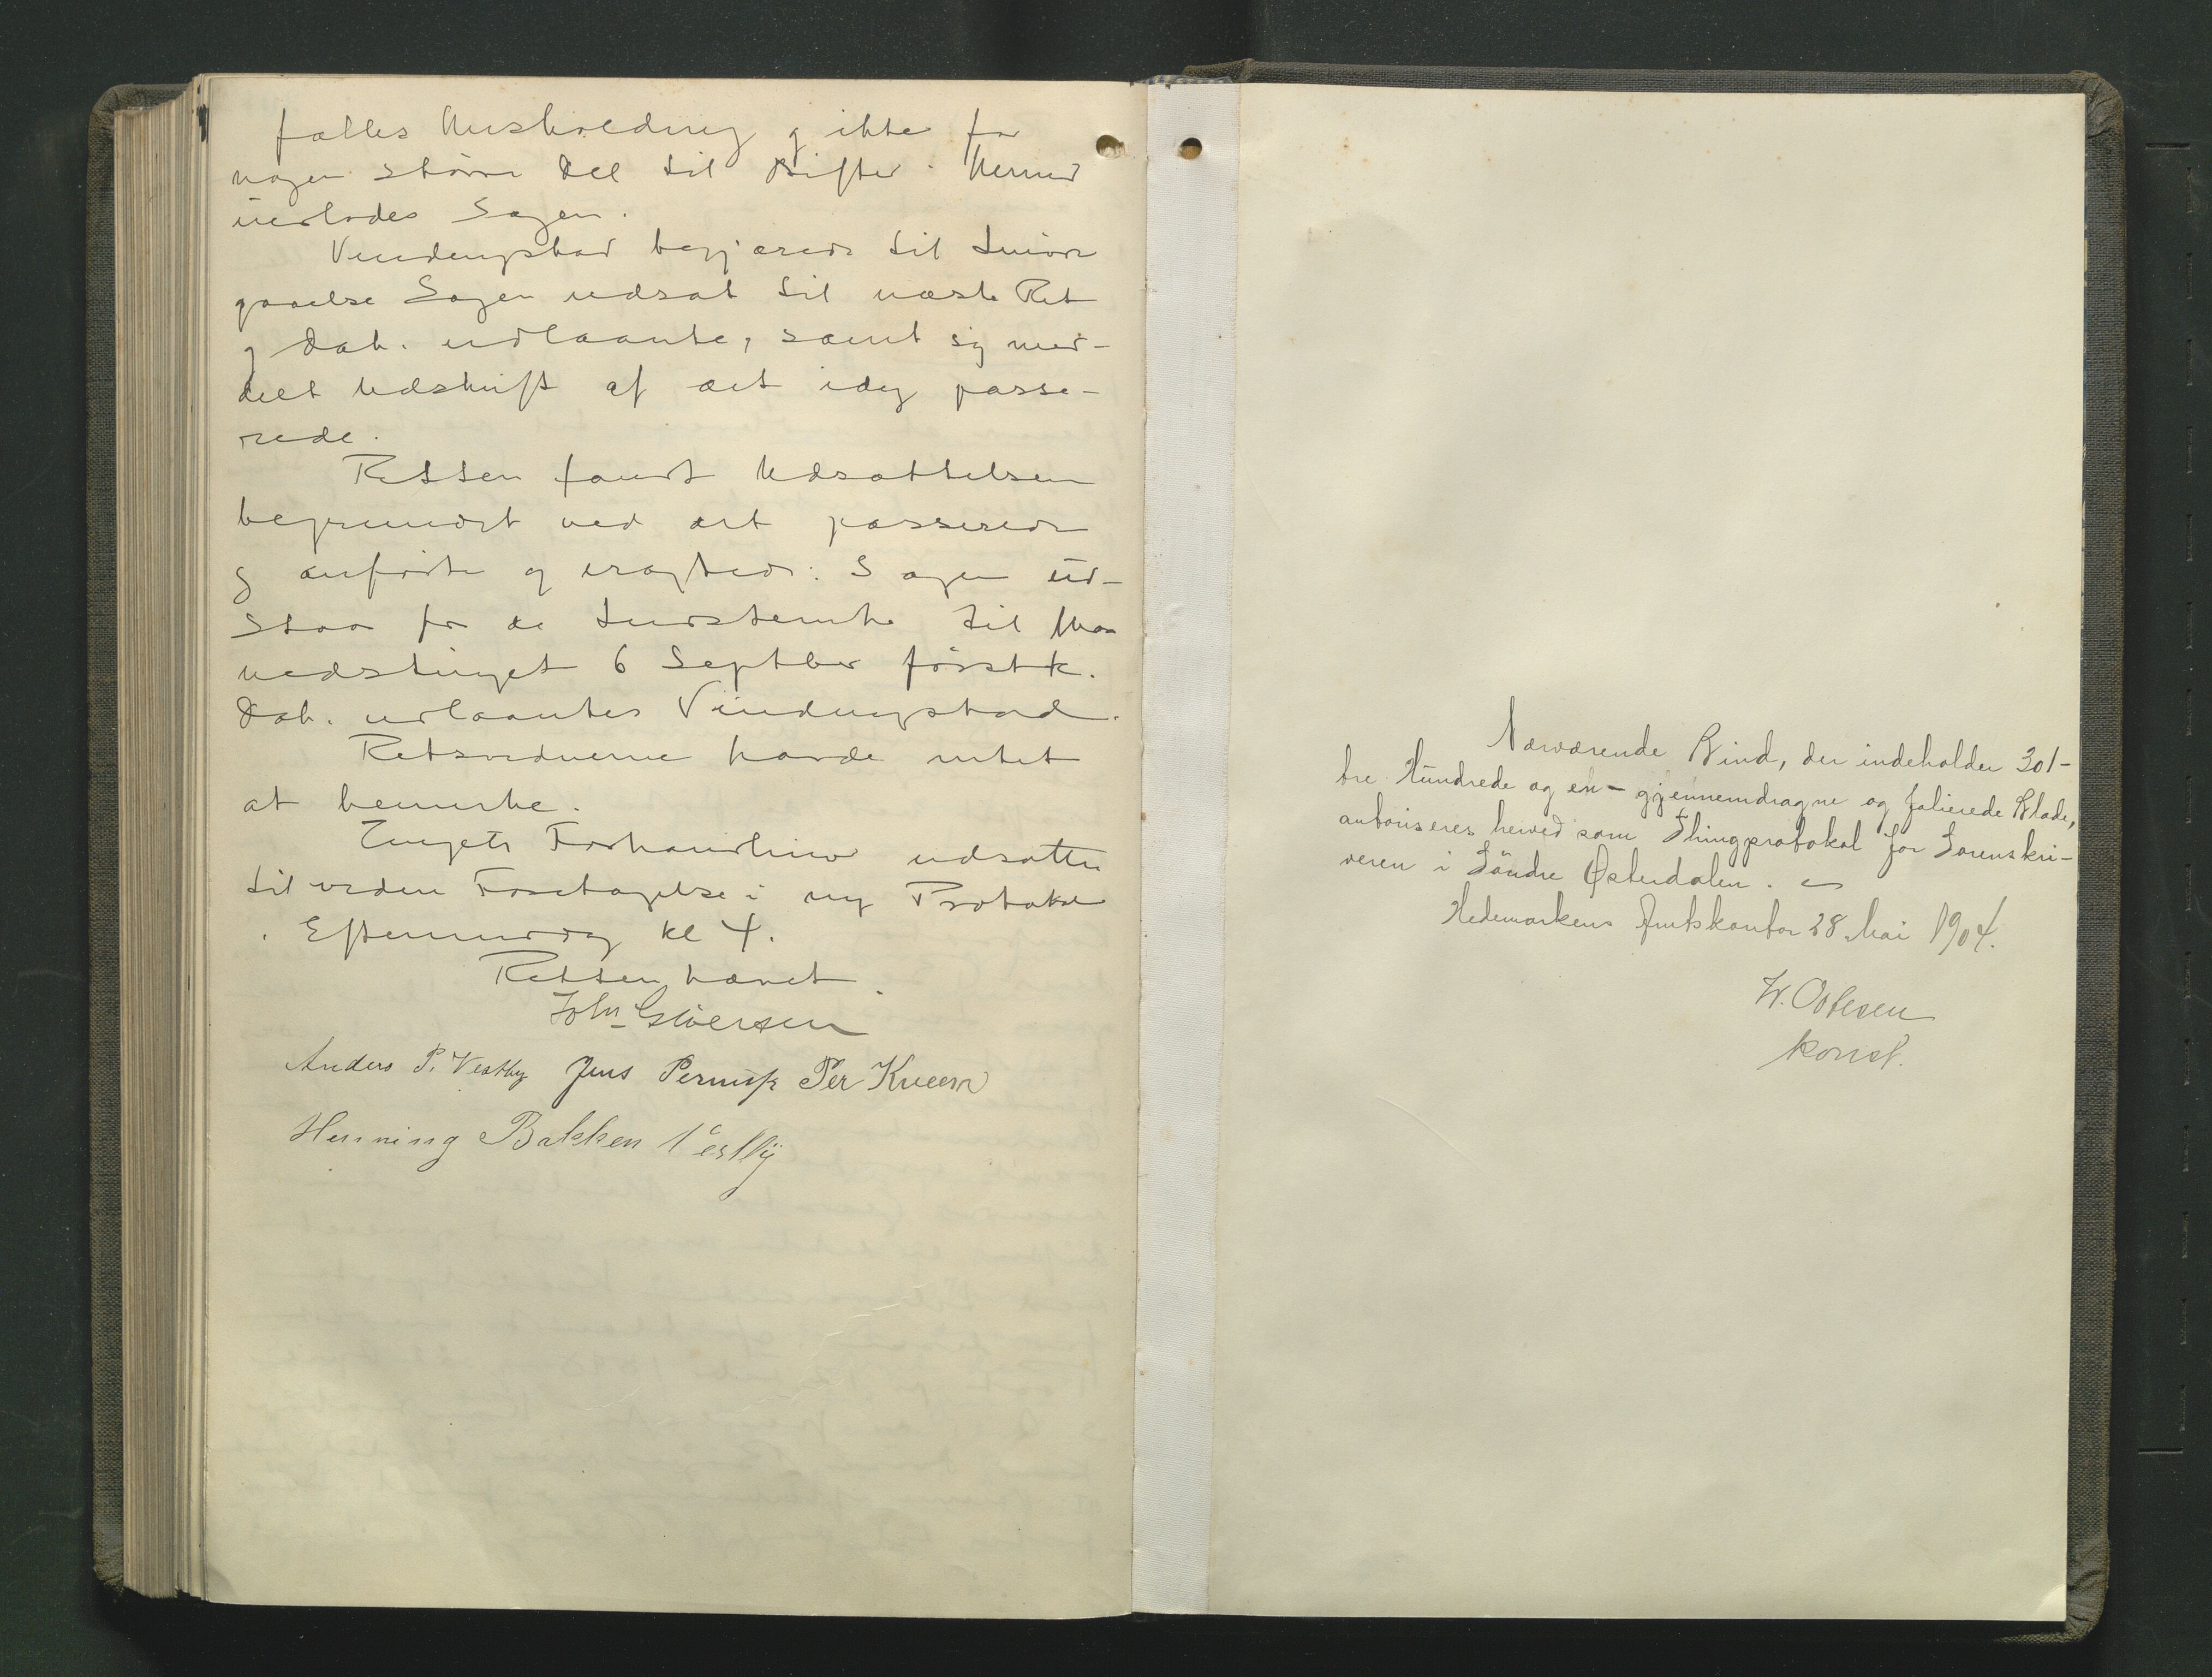 fælles Husholdning og ikke for
nogen større Del til Bifter. Hermed
overlodes Sagen.
Vindingstad begjærede til Imøde
gaaelse Sagen udsat til næste Ret
og Dok. udlaante, samt sig med-
delt Udskrift af det idag passe-
rede.
Retten fandt Udsættelsen
begrundet ved det passerede
og anførte og eragtede: Sagen ud-
staar for de Indstevnte til Maa
nedstinget 6 Septber førstk.
Dok. udlaantes Vindingstad.
Retsvidnerne havde intet
at bemerke.
Tingets Forhandlinger udsattes
til videre Foretagelse i ny Protokol
i Eftermiddag kl 4.
Retten hævet.
Joh. Siversen
Anders P. Vestby Jens Pernis Per Kveen
Henning Bakken Vestby
Nærværende Bind, der indeholder 301-
tre Hundrede og en - gjennemdragne og folierede Blade,
autoriseres herved som Thingprotokol for Sorenskri-
veren i Söndre Østerdalen.
Hedemarkens Amtskontor 28 Mai 1904.
W. Ottesen
konst.